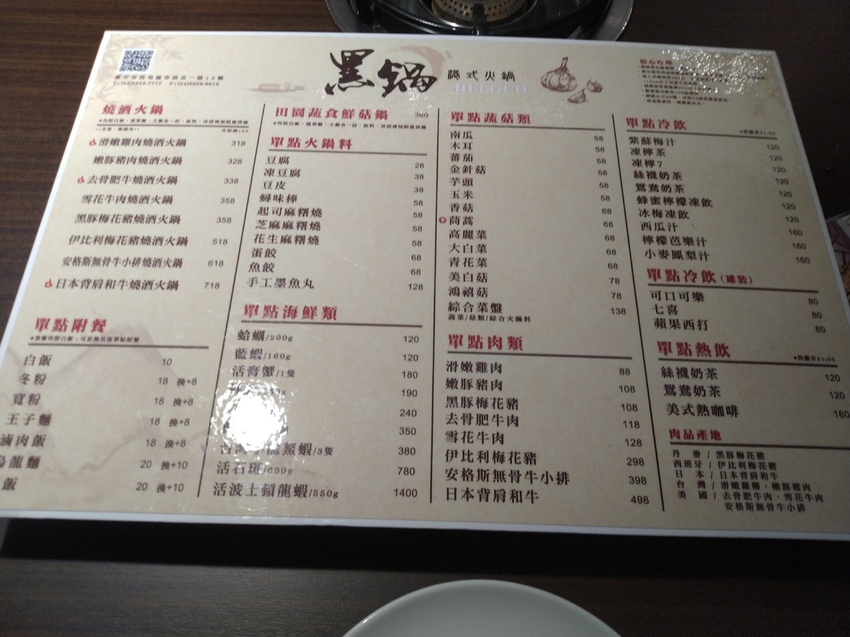 黑鍋
隅式火鍋
HEIGUO
貼心叮嚀
燒酒火鍋
滑嫩雞肉燒酒火鍋 318
嫩豚豬肉燒酒火鍋 328
去骨肥牛燒酒火鍋 338
雪花牛肉燒酒火鍋 358
黑豚梅花豬燒酒火鍋 358
伊比利梅花豬燒酒火鍋 518
安格斯無骨牛小排燒酒火鍋 618
日本背肩和牛燒酒火鍋 718
單點附餐
白飯 10
冬粉 18 換+8
寬粉 18 換+8
王子麵 18 換+8
滷肉飯 18 換+8
烏龍麵 20 換+10
飯 20 換+10
田園蔬食鮮菇鍋 380
單點火鍋料
豆腐 28
凍豆腐 38
豆皮 38
蟳味棒 58
起司麻糬燒 58
芝麻麻糬燒 58
花生麻糬燒 58
蛋餃 68
魚餃 68
手工墨魚丸 128
單點海鮮類
蛤蠣/200g 120
藍蝦/160g 120
活膏蟹/1隻 180
190
240
350
蝦/3隻 380
活石斑/600g 780
活波士頓龍蝦/550g 1400
單點蔬菇類
南瓜 58
木耳 58
蕃茄 58
金針菇 58
芋頭 58
玉米 58
香菇 68
茼蒿 68
高麗菜 68
大白菜 68
青花菜 68
美白菇 78
鴻禧菇 78
綜合菜盤 138
蔬菜/菇類/綜合火鍋料
單點肉類
滑嫩雞肉 88
嫩豚豬肉 108
黑豚梅花豬 108
去骨肥牛肉 118
雪花牛肉 128
伊比利梅花豬 298
安格斯無骨牛小排 398
日本背肩和牛 498
單點冷飲
紫蘇梅汁 120
凍檸茶 120
凍檸7 120
絲襪奶茶 120
鴛鴦奶茶 120
蜂蜜檸檬凍飲 120
冰梅凍飲 120
西瓜汁 160
檸檬芭樂汁 160
小麥鳳梨汁 160
單點冷飲(罐裝)
可口可樂 80
七喜 80
蘋果西打 80
單點熱飲
絲襪奶茶 120
鴛鴦奶茶 120
美式熱咖啡 160
肉品產地
丹麥/黑豚梅花豬
西班牙/伊比利梅花豬
日本/日本背肩和牛
台灣/滑嫩雞腿、嫩豚豬肉
美國/去骨肥牛肉、雪花牛肉
安格斯無骨牛小排